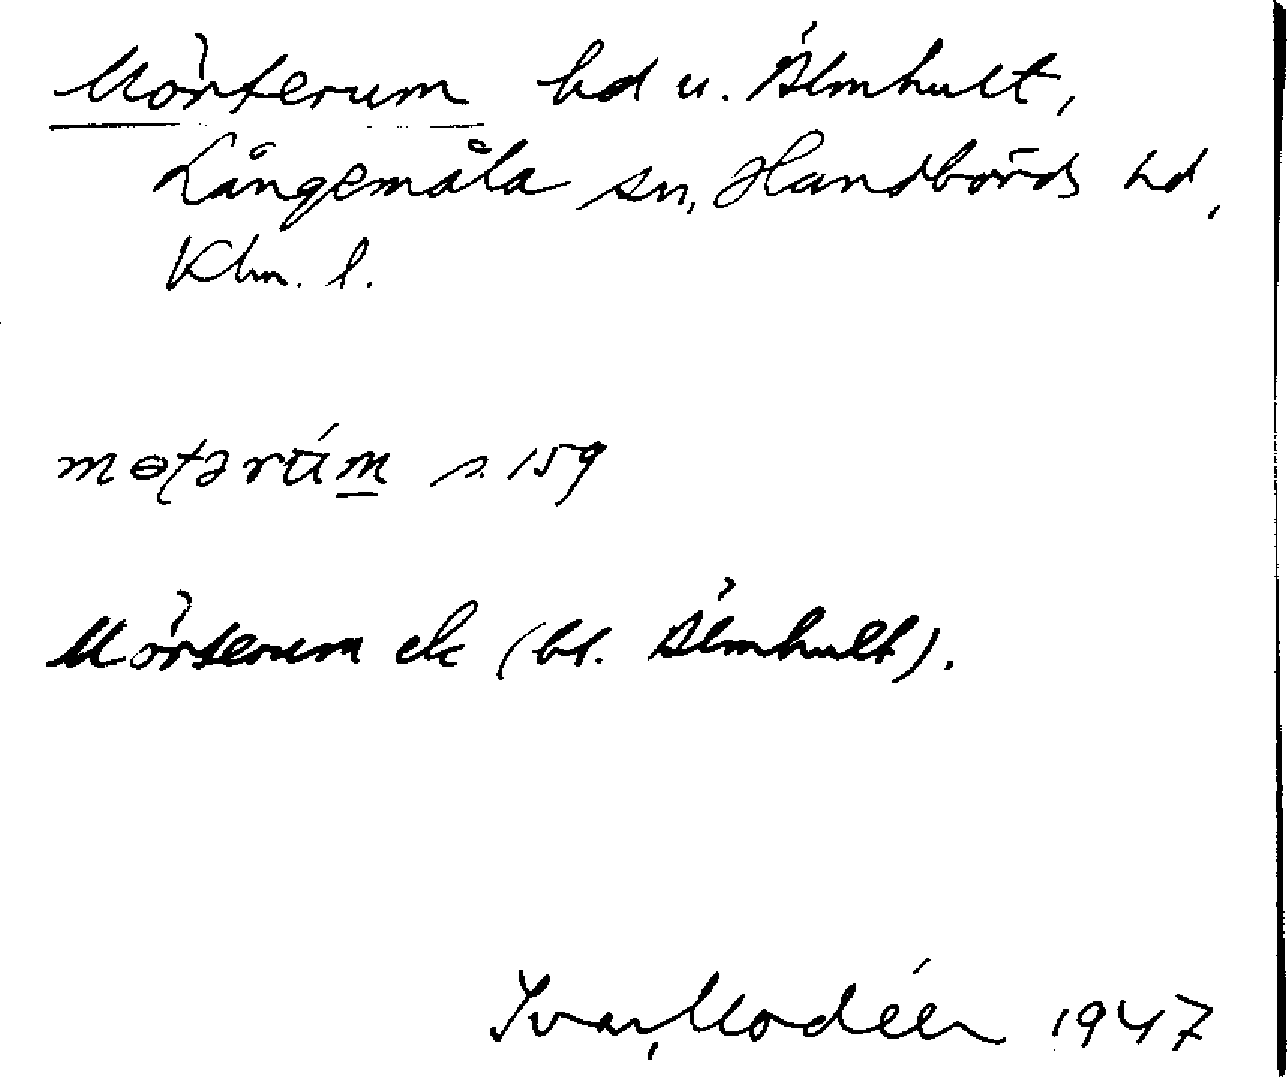 Mörterum hd u. Älmhult,
Långemåla sn, Handbörds hd,
Klm. l.
møtərúm s. 159
Mörterum ek (bl. Älmhult).
Ivar Modéer 1947